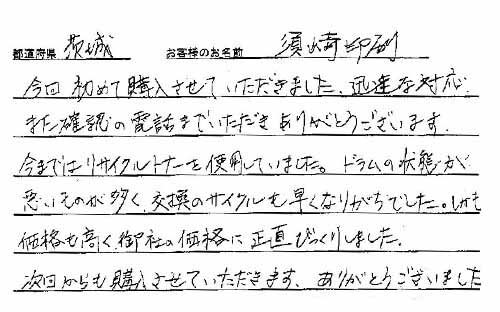 都道府県 茨城 お客様のお名前 須崎印刷
今回初めて購入させていただきました。迅速な対応
また確認の電話までいただきありがとうございます。
今まではリサイクルトナーを使用していました。ドラムの状態が
悪いものが多く、交換のサイクルも早くなりがちでした。しかも
価格も高く、御社の価格に正直びっくりしました。
次回からも購入させていただきます。ありがとうございました